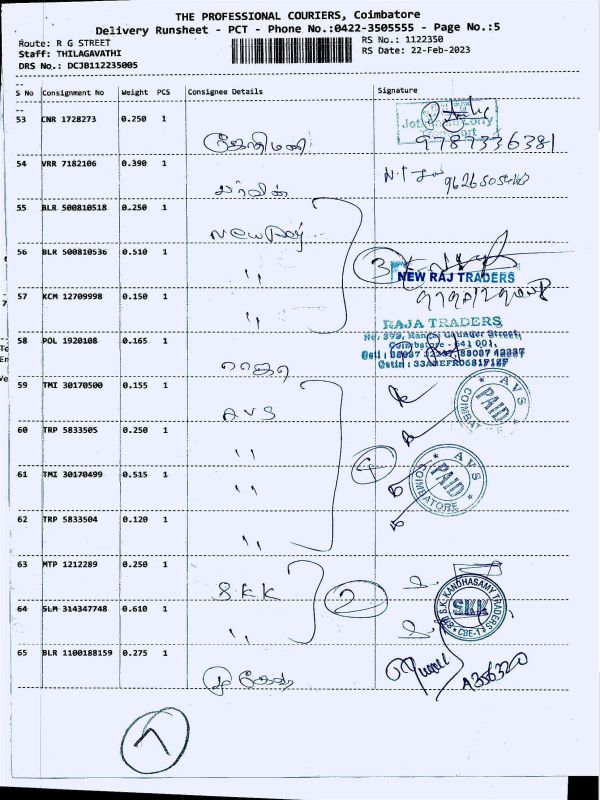 THE PROFESSIONAL COURIERS, Coimbatore
Delivery Runsheet - PCT - Phone No.:0422-3505555 - Page No.:5
Route: R G STREET
Staff: THILAGAVATHI
DRS No.: DCJB112235005
RS No.: 1122350
RS Date: 22-Feb-2023
S No Consignment No Weight PCS Consignee Details Signature
53 CNR 1728273 0.250 1
ஜோதிமணி
9787336381
54 VRR 7182106 0.390 1
N.T
55 BLR 500810518 0.250 1
New Raj
56 BLR 500810536 0.510 1
"
3
NEW RAJ TRADERS
57 KCM 12709998 0.150 1
"
58 POL 1920108 0.165 1
ராஜா
RAJA TRADERS
Coimbatore - 641 001.
59 TMI 30170500 0.155 1
AVS
AVS PAID COIMBATORE
60 TRP 5833505 0.250 1
"
4
61 TMI 30170499 0.515 1
"
AVS PAID COIMBATORE
62 TRP 5833504 0.120 1
"
63 MTP 1212289 0.250 1
S.K.K
2
64 SLM 314347748 0.610 1
"
S.K. KANDHASAMY TRADERS SKK CBE-1
65 BLR 1100188159 0.275 1
A356320
7